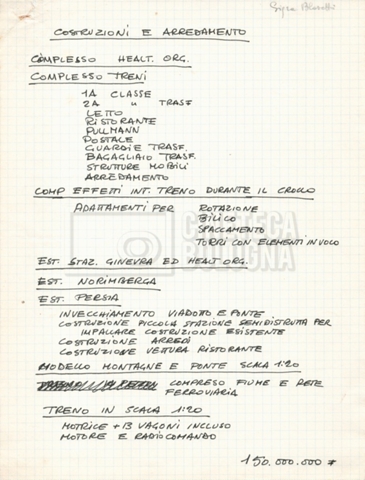 COSTRUZIONI E ARREDAMENTO
COMPLESSO HEALT. ORG.
COMPLESSO TRENI
1A CLASSE
2A " TRASF
LETTO
RISTORANTE
PULLMANN
POSTALE
GUARDIE TRASF.
BAGAGLIAIO TRASF.
STRUTTURE MOBILI
ARREDAMENTO
COMP EFFETTI INT. TRENO DURANTE IL CROLLO
ADATTAMENTI PER ROTAZIONE
BILICO
SPACCAMENTO
TORRI CON ELEMENTI IN VOLO
CINETECA
BOLOGNA
EST. STAZ. GINEVRA ED HEALT ORG.
EST. NORIMBERGA
EST. PERSIA
INVECCHIAMENTO VIADOTTO E PONTE
COSTRUZIONE PICCOLA STAZIONE SEMIDISTRUTTA PER
IMPALLARE COSTRUZIONE ESISTENTE
COSTRUZIONE ARREDI
COSTRUZIONE VETTURA RISTORANTE
MODELLO MONTAGNE E PONTE SCALA 1:20
COMPRESO FIUME E RETE
FERROVIARIA
TRENO IN SCALA 1:20
MOTRICE + 13 VAGONI INCLUSO
MOTORE E RADIOCOMANDO
150.000.000